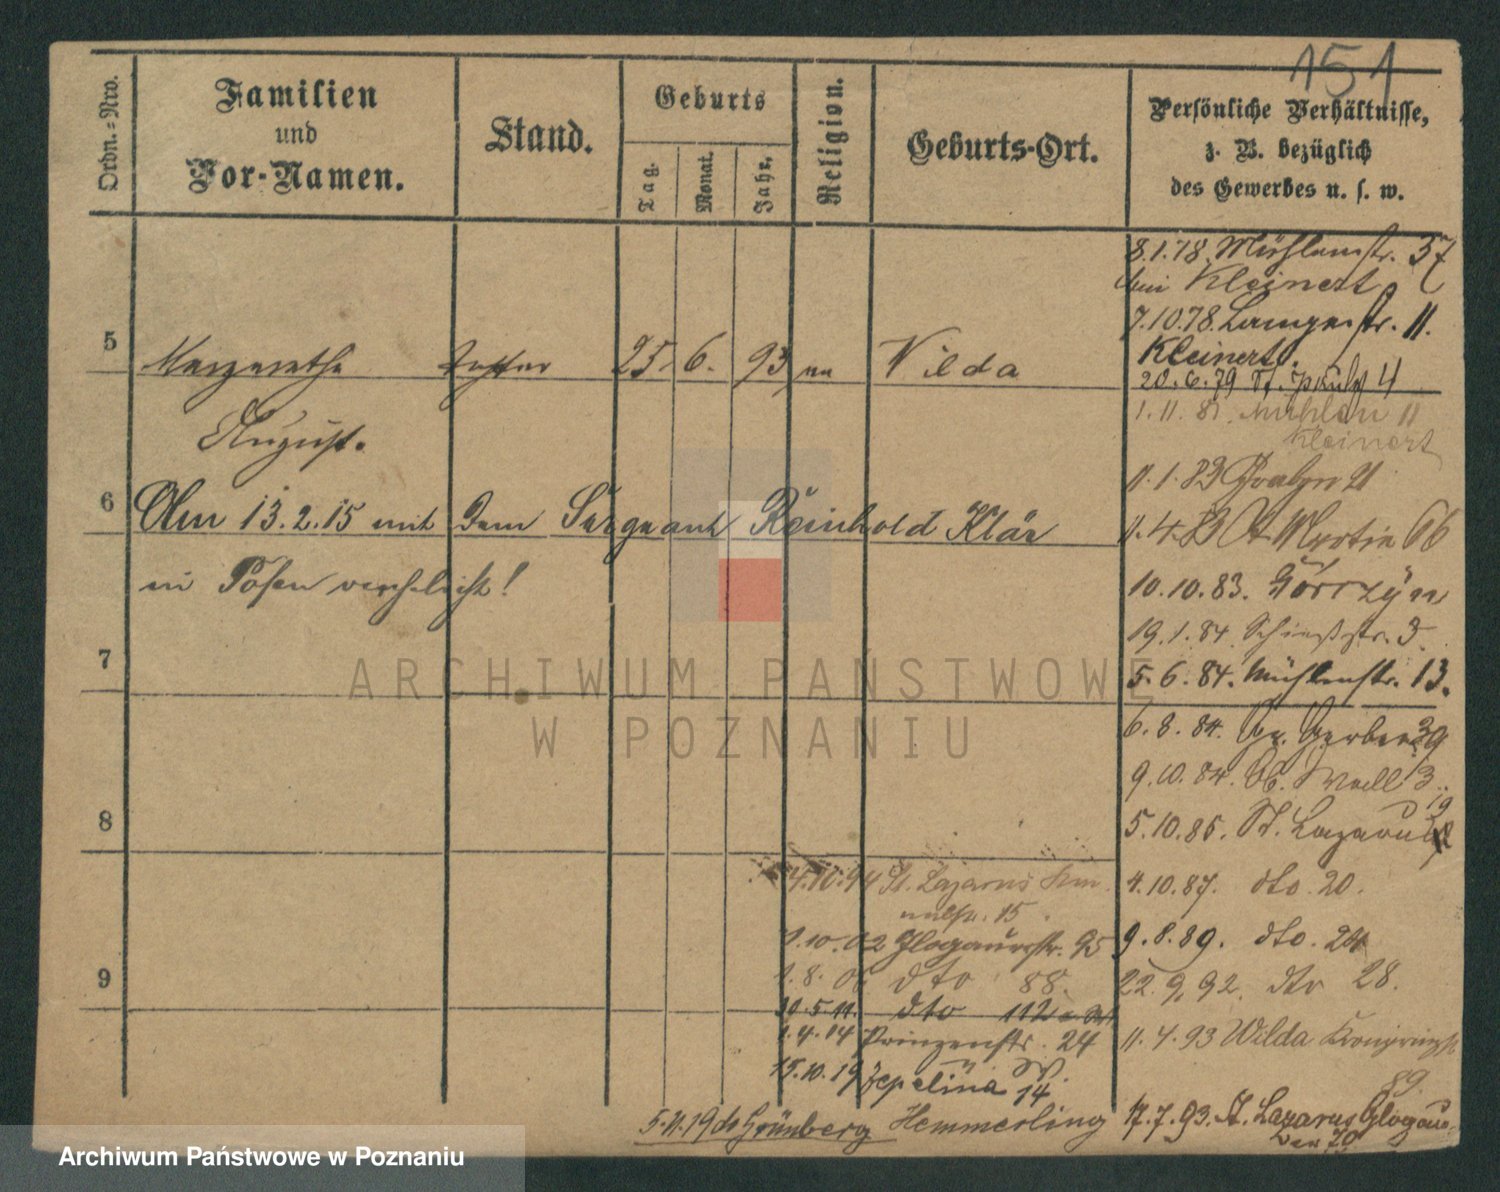 151
Ordn.=Nro.
Familien
und
Vor-Namen.
Stand.
Geburts
Tag.
Monat.
Jahr.
Religion.
Geburts-Ort.
Persönliche Verhältnisse,
z. B. bezüglich
des Gewerbes u. s. w.
8.1.78. Mühlenstr. 37
bei Kleinert
7.10.78. Langestr. 11.
Kleinert.
5 Margarethe Tochter 25. 6. 93 Wilda
20.6.79 4
1.11.81. Mühlen 11
Kleinert
August.
11.1.83 21
6 Am 13.2.15 mit dem Sergeant Reinhold Klär
11.4.83 St Martin 66
in Posen verehelicht!
10.10.83. Gorczyn
19.1.84. Schießstr. 3.
7
5.6.84. Mühlenstr. 13.
ARCHIWUM PAŃSTWOWE
W POZNANIU
6.8.84. Gr. Gerber 39
9.10.84. Wall 3.
8
5.10.85. St. Lazarus 19
4.10.94 St. Lazarus
15.
4.10.87. dto. 20.
1.10.02 Glogauerstr. 95
9.8.89. dto. 24
9
1.8.06 dto 88.
22.9.92. dto 28.
30.5.11. dto 112
1.4.14 Prinzenstr. 24
11.4.93 Wilda Kronprinzstr
89.
15.10.19 Zepelina 14
5.11.19 Grünberg Hemmerling
17.7.93. St. Lazarus Glogau
Archiwum Państwowe w Poznaniu